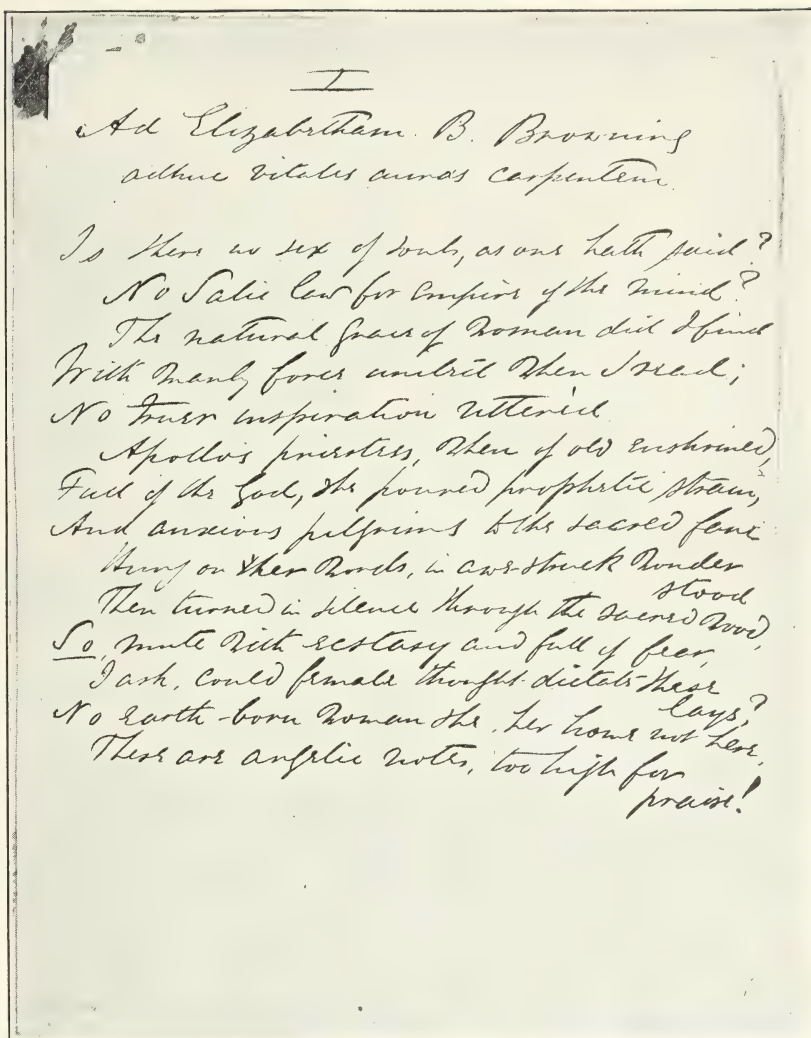 I
Ad Elizabetham B. Browning
adhuc vitales auras carpentem.
Is there no sex of souls, as one hath said?
No Salic law for empire of the mind?
The natural grace of woman did I find
With manly force unit'd when I read;
No truer inspiration utter'd
Apollo's priestess, when of old enshrined,
Full of the God, she poured prophetic strain,
And anxious pilgrims to the sacred fane
Hung on her words, in awe-struck wonder
stood
Then turned in silence through the sacred wood,
So, mute with ecstasy and full of fear,
I ask, could female thought dictate these
lays?
No earth-born woman she, her home not here,
There are angelic notes, too high for
praise!